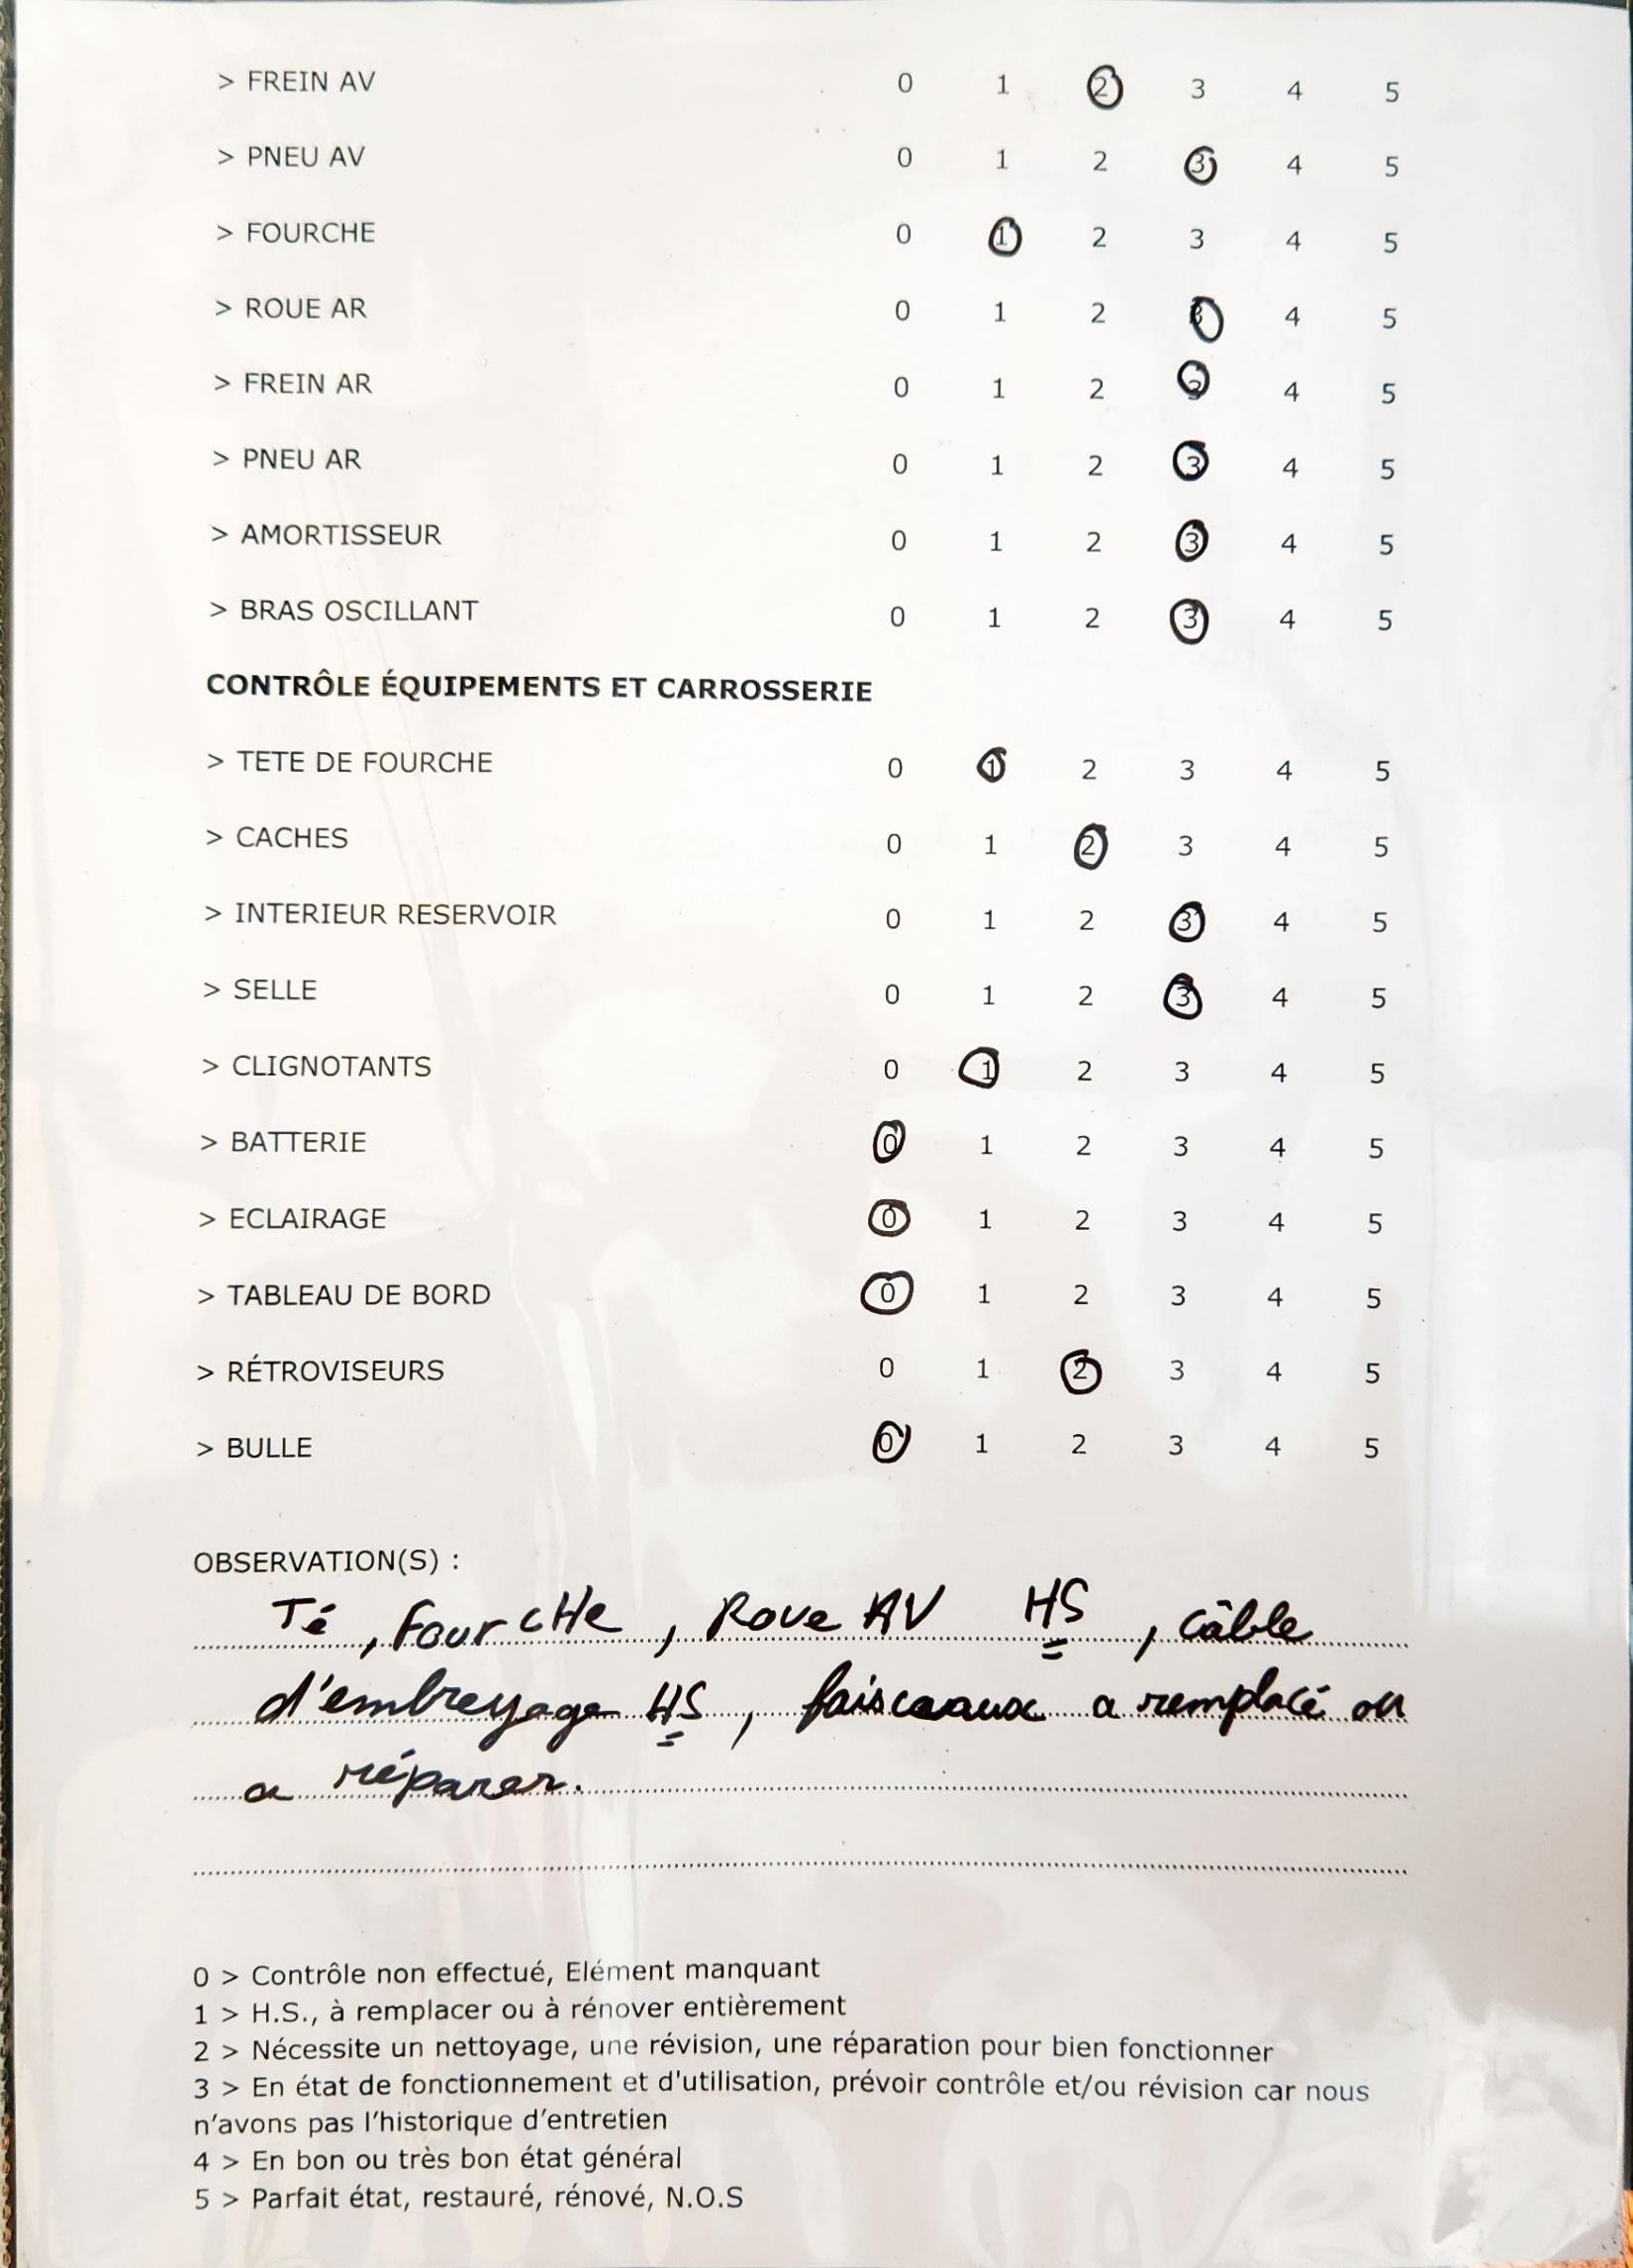 > FREIN AV 0 1 2 3 4 5
> PNEU AV 0 1 2 3 4 5
> FOURCHE 0 1 2 3 4 5
> ROUE AR 0 1 2 3 4 5
> FREIN AR 0 1 2 3 4 5
> PNEU AR 0 1 2 3 4 5
> AMORTISSEUR 0 1 2 3 4 5
> BRAS OSCILLANT 0 1 2 3 4 5
CONTRÔLE ÉQUIPEMENTS ET CARROSSERIE
> TETE DE FOURCHE 0 1 2 3 4 5
> CACHES 0 1 2 3 4 5
> INTERIEUR RESERVOIR 0 1 2 3 4 5
> SELLE 0 1 2 3 4 5
> CLIGNOTANTS 0 1 2 3 4 5
> BATTERIE 0 1 2 3 4 5
> ECLAIRAGE 0 1 2 3 4 5
> TABLEAU DE BORD 0 1 2 3 4 5
> RÉTROVISEURS 0 1 2 3 4 5
> BULLE 0 1 2 3 4 5
OBSERVATION(S) :
Té, FourcHe, Roue AV HS, câble
d'embreyage HS, faisceaux a remplacé ou
a réparer.
0 > Contrôle non effectué, Elément manquant
1 > H.S., à remplacer ou à rénover entièrement
2 > Nécessite un nettoyage, une révision, une réparation pour bien fonctionner
3 > En état de fonctionnement et d'utilisation, prévoir contrôle et/ou révision car nous
n'avons pas l'historique d'entretien
4 > En bon ou très bon état général
5 > Parfait état, restauré, rénové, N.O.S